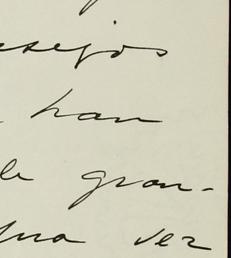 nsejos
han
le gran-
una vez